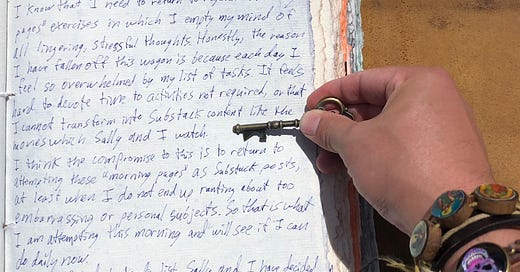 I know that I need to return to
pages" exercises in which I empty my mind of
all lingering, stressful thoughts. Honestly, the reason
I have fallen off this wagon is because each day I
feel so overwhelmed by my list of tasks. It feels
hard to devote time to activities not required, or that
I cannot transform into Substack content like the
movies which Sally and I watch.
I think the compromise to this is to return to
attempting these "morning pages" as Substack posts,
at least when I do not end up ranting about too
embarrassing or personal subjects. So that is what
I am attempting this morning and will see if I can
do daily now.
to list, Sally and I have decided